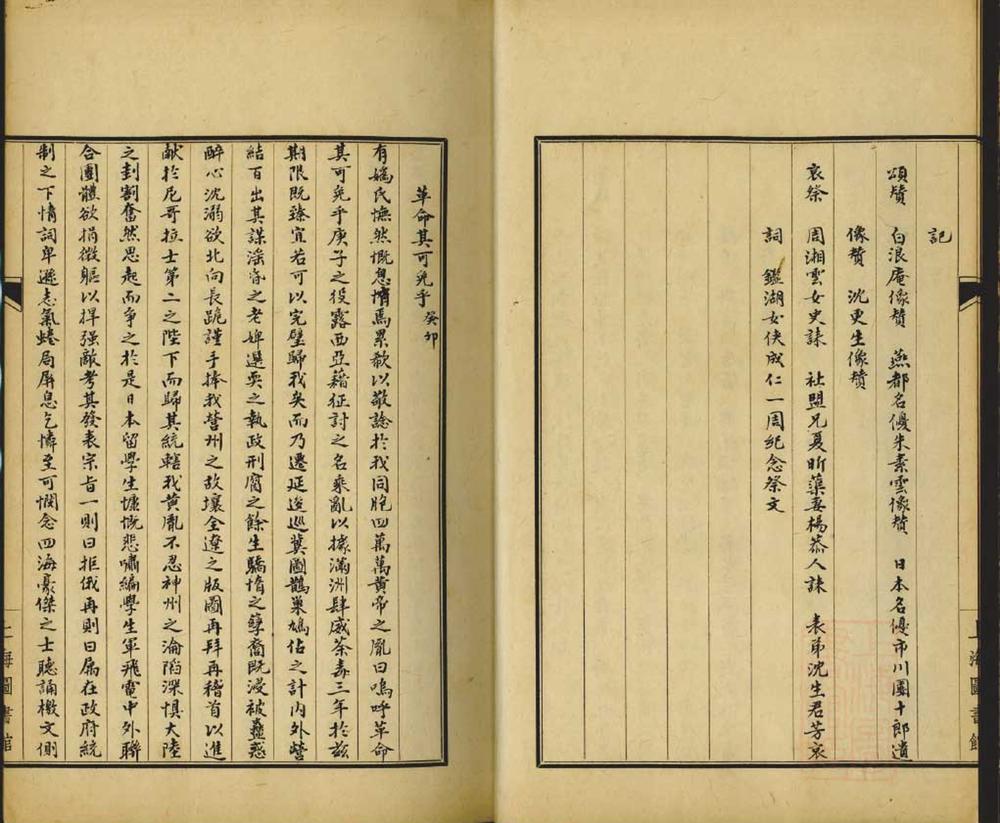 記
頌贊　白浪庵像贊　燕都名優朱素雲像贊　日本名優市川團十郎遺
像贊　沈更生像贊
哀祭　周湘雲女史誄　社盟兄夏昕蕖妻楊恭人誄　表弟沈生君芳哀
詞　鑑湖女俠成仁一周紀念祭文
上海圖書館
革命其可免乎 癸卯
有嬀氏憮然慨息懠焉累欷以敬諗於我同胞四萬萬黃帝之胤曰嗚呼革命
其可免乎庚子之役露西亞藉征討之名乘亂以據滿洲肆威荼毒三年於兹
期限既臻宜若可以完璧歸我矣而乃遷延逡巡冀圖鵲巢鳩佔之計內外營
結百出其謀淫昏之老婢選耎之執政刑腐之餘生驕惰之孽裔既浸被蠱惑
醉心沈溺欲北向長跪謹手捧我營州之故壤全遼之版圖再拜再稽首以進
献於尼哥拉士第二之陛下而歸其統轄我黃胤不忍神州之淪陷深惧大陸
之刲割奮然思起而爭之於是日本留學生慷慨悲嘯編學生軍飛電中外聯
合團體欲捐微軀以捍强敵考其發表宗旨一則曰拒俄再則曰屬在政府統
制之下情詞卑遜志氣蜷局屏息乞憐至可憫念四海豪傑之士聽誦檄文側
上海圖書館